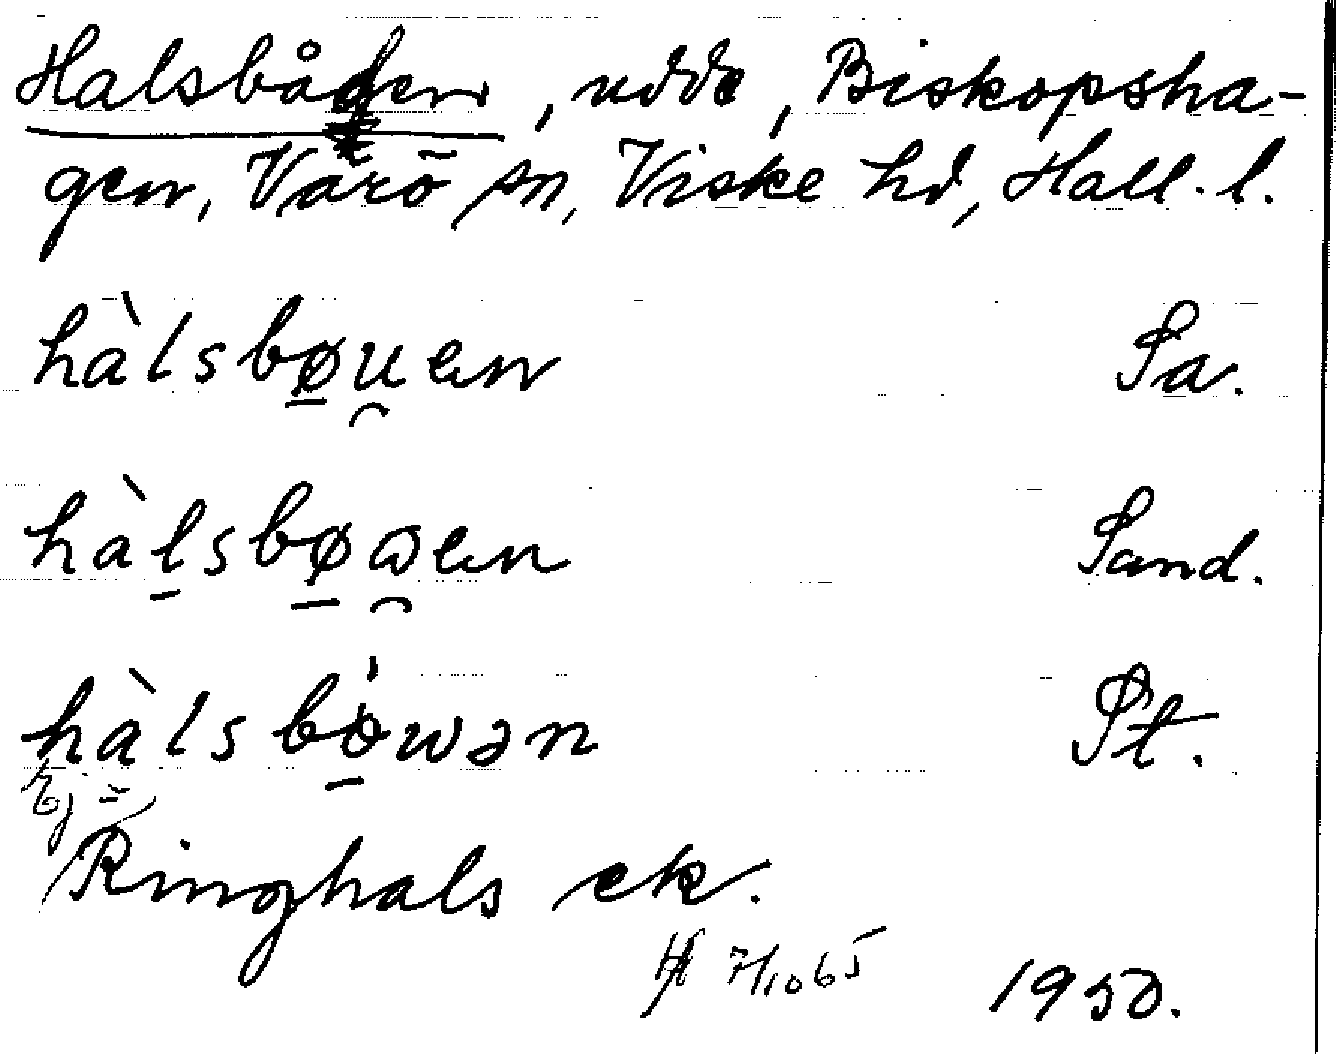 Halsbåden, udde, Biskopsha-
gen, Värö sn, Viske hd, Hall. l.
hàlsbø̱u̯en Sa.
hàl̠sbø̱ɷ̯en Sand.
hàlsbò̱wən St.
Ej =
Ringhals ek.
7/10 65 1950.